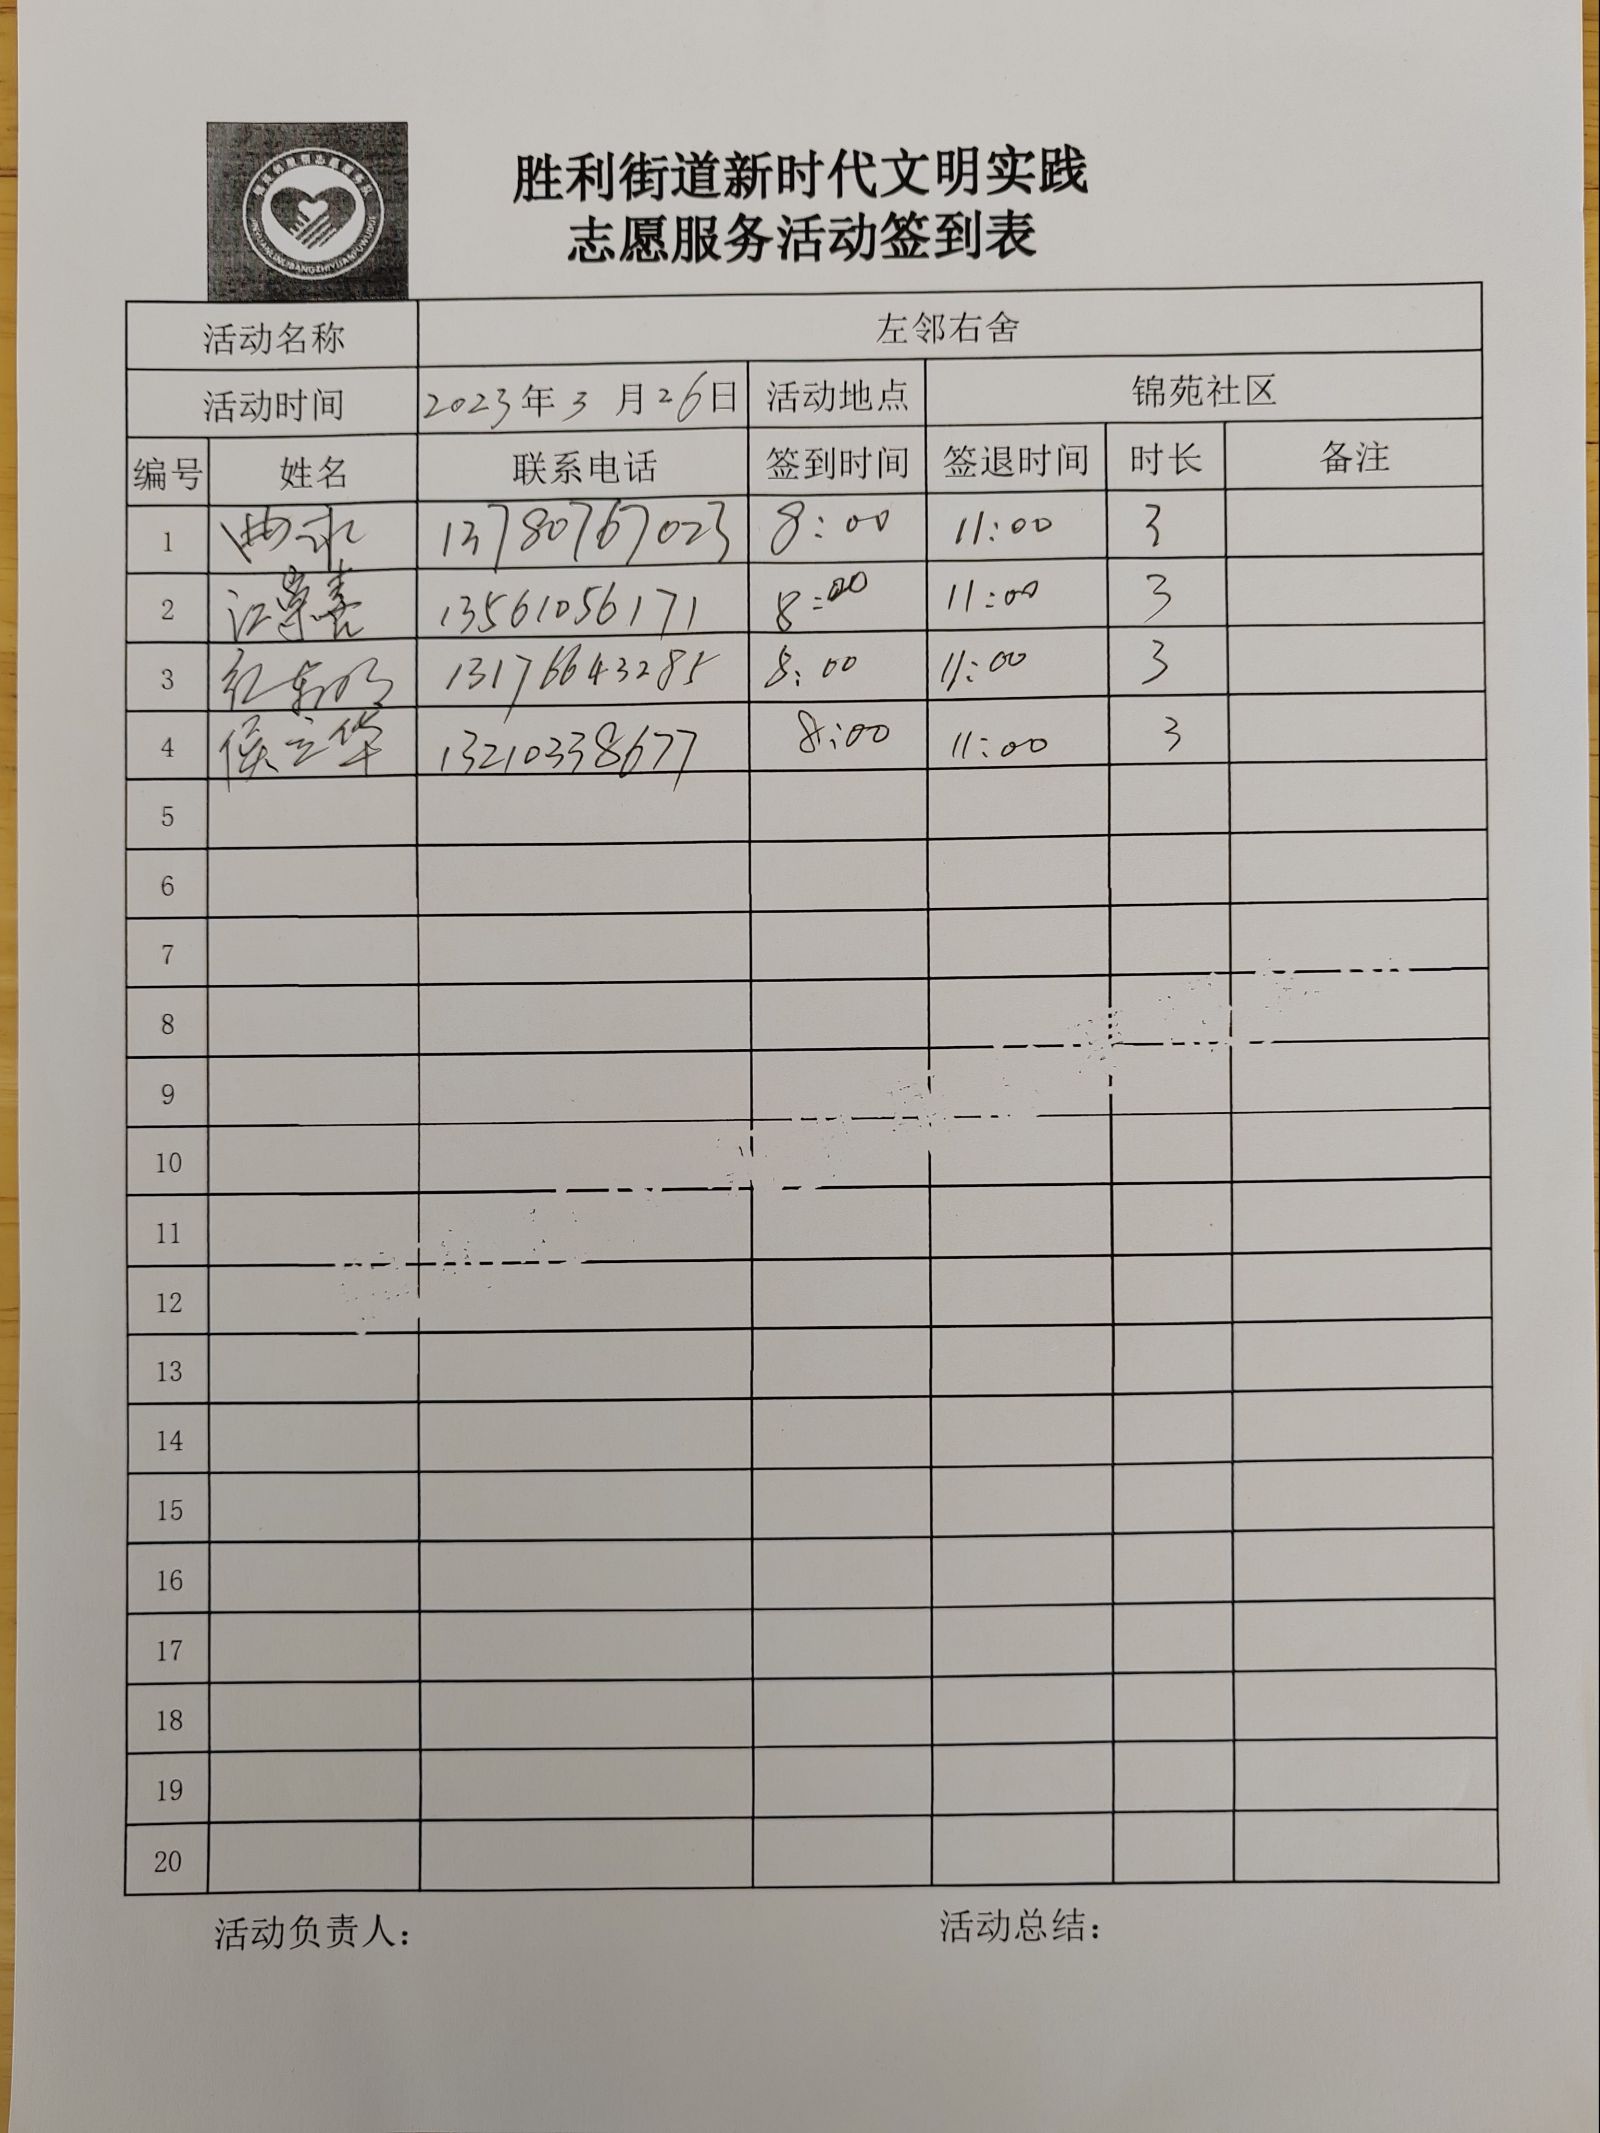 胜利街道新时代文明实践
志愿服务活动签到表
活动名称 左邻右舍
活动时间 2023年3月26日 活动地点 锦苑社区
编号 姓名 联系电话 签到时间 签退时间 时长 备注
1 曲 13780767023 8:00 11:00 3
2 江崇喜 13561056171 8:00 11:00 3
3 13176643285 8:00 11:00 3
4 侯立华 13210338677 8:00 11:00 3
5
6
7
8
9
10
11
12
13
14
15
16
17
18
19
20
活动负责人： 活动总结：